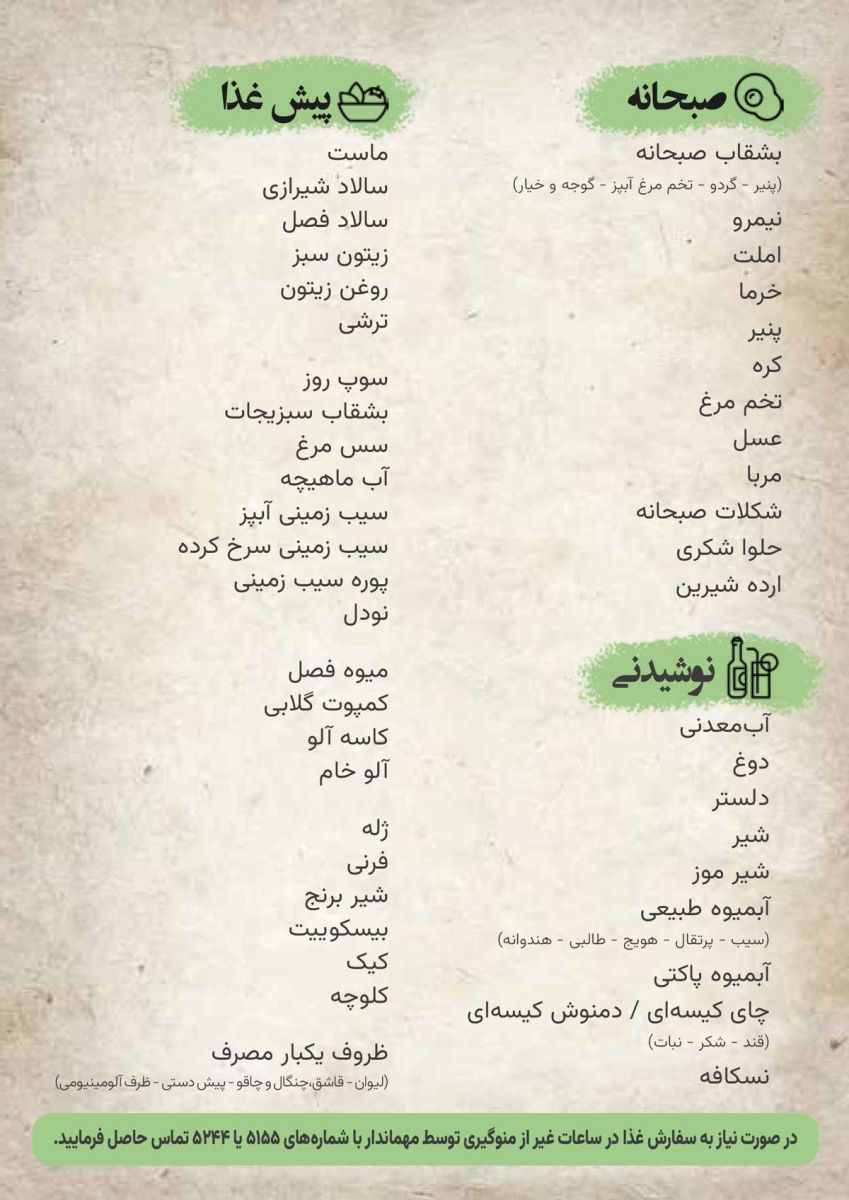 صبحانه
بشقاب صبحانه
(پنیر - گردو - تخم مرغ آبپز - گوجه و خیار)
نیمرو
املت
خرما
پنیر
کره
تخم مرغ
عسل
مربا
شکلات صبحانه
حلوا شکری
ارده شیرین
نوشیدنی
آب‌معدنی
دوغ
دلستر
شیر
شیر موز
آبمیوه طبیعی
(سیب - پرتقال - هویج - طالبی - هندوانه)
آبمیوه پاکتی
چای کیسه‌ای / دمنوش کیسه‌ای
(قند - شکر - نبات)
نسکافه
پیش غذا
ماست
سالاد شیرازی
سالاد فصل
زیتون سبز
روغن زیتون
ترشی
سوپ روز
بشقاب سبزیجات
سس مرغ
آب ماهیچه
سیب زمینی آبپز
سیب زمینی سرخ کرده
پوره سیب زمینی
نودل
میوه فصل
کمپوت گلابی
کاسه آلو
آلو خام
ژله
فرنی
شیر برنج
بیسکوییت
کیک
کلوچه
ظروف یکبار مصرف
(لیوان - قاشق،چنگال و چاقو - پیش دستی - ظرف آلومینیومی)
در صورت نیاز به سفارش غذا در ساعات غیر از منوگیری توسط مهماندار با شماره‌های ۵۱۵۵ یا ۵۲۴۴ تماس حاصل فرمایید.